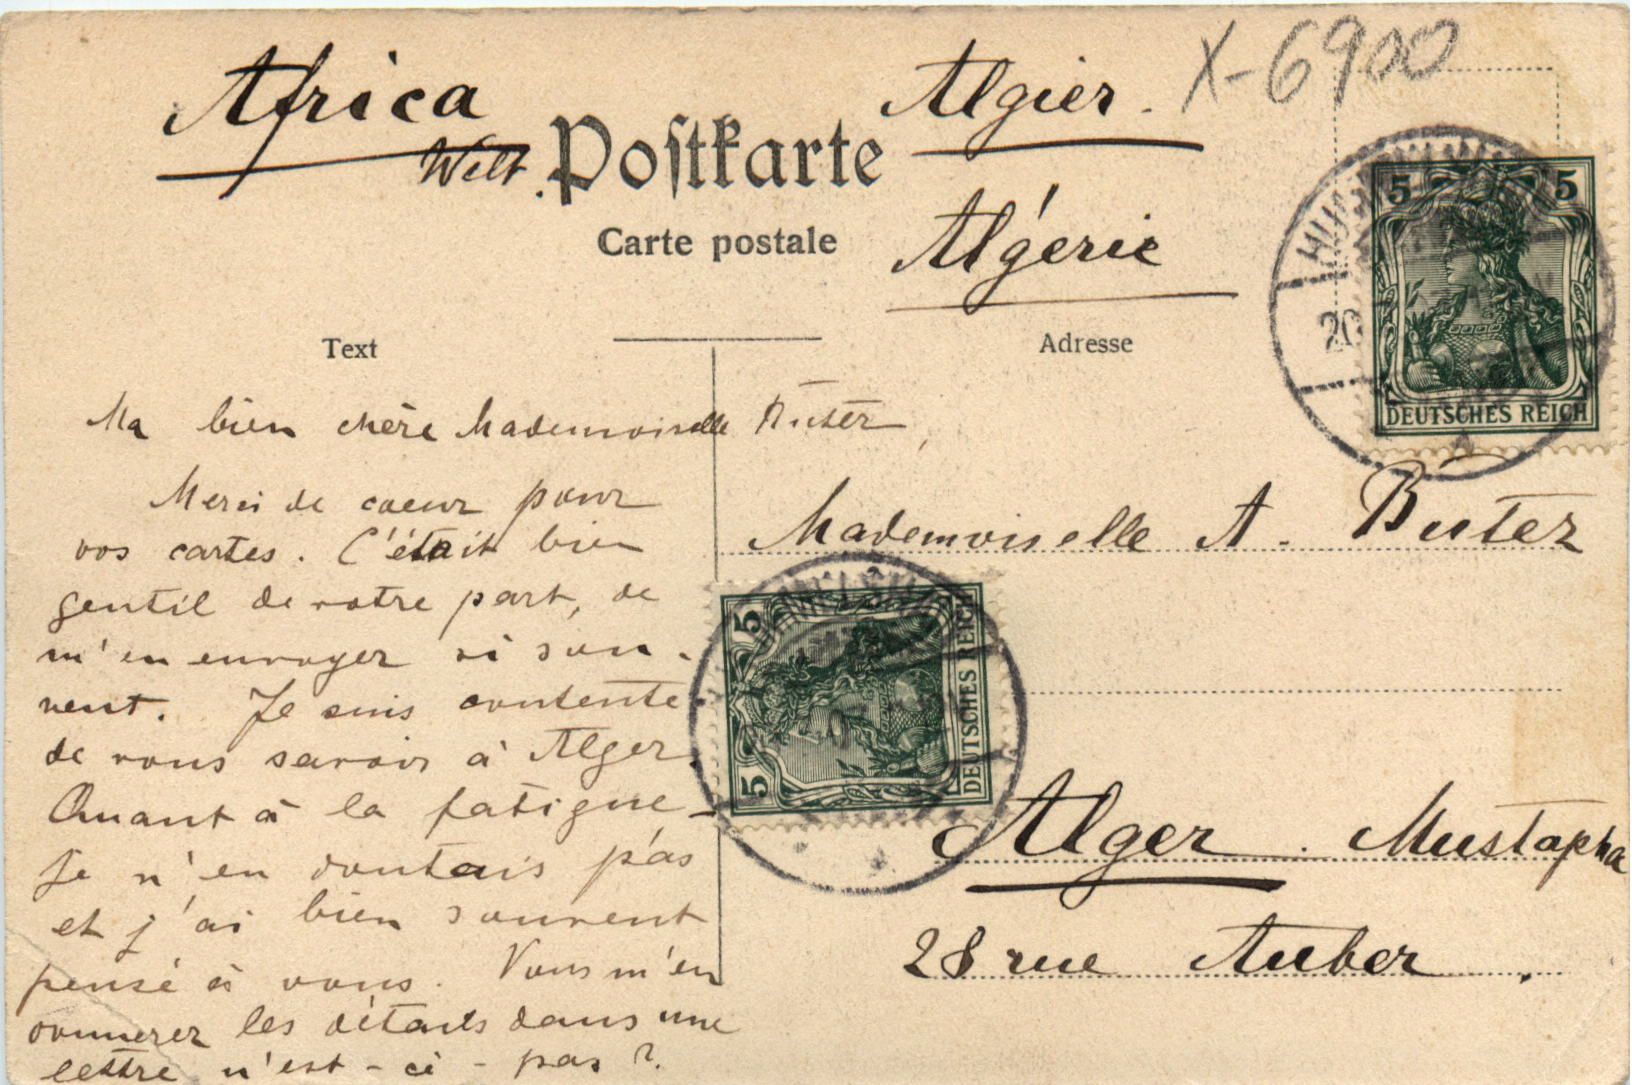 Africa
Welt.
Algier.
X-6900
Postkarte
Carte postale
Algérie
Text
Adresse
5 5
DEUTSCHES REICH
20
Ma bien chère Mademoiselle Büter,
Merci de coeur pour
vos cartes. C'était bien
gentil de votre part, de
m'en envoyer si sou-
vent. Je suis contente
de vous savoir à Alger.
Quant à la fatigue -
je n'en doutais pas
et j'ai bien souvent
pensé à vous. Vous m'en
donnerez les détails dans une
lettre n'est-ce-pas?
Mademoiselle A. Büter
5 5
DEUTSCHES REICH
Alger. Mustapha
28 rue Auber.